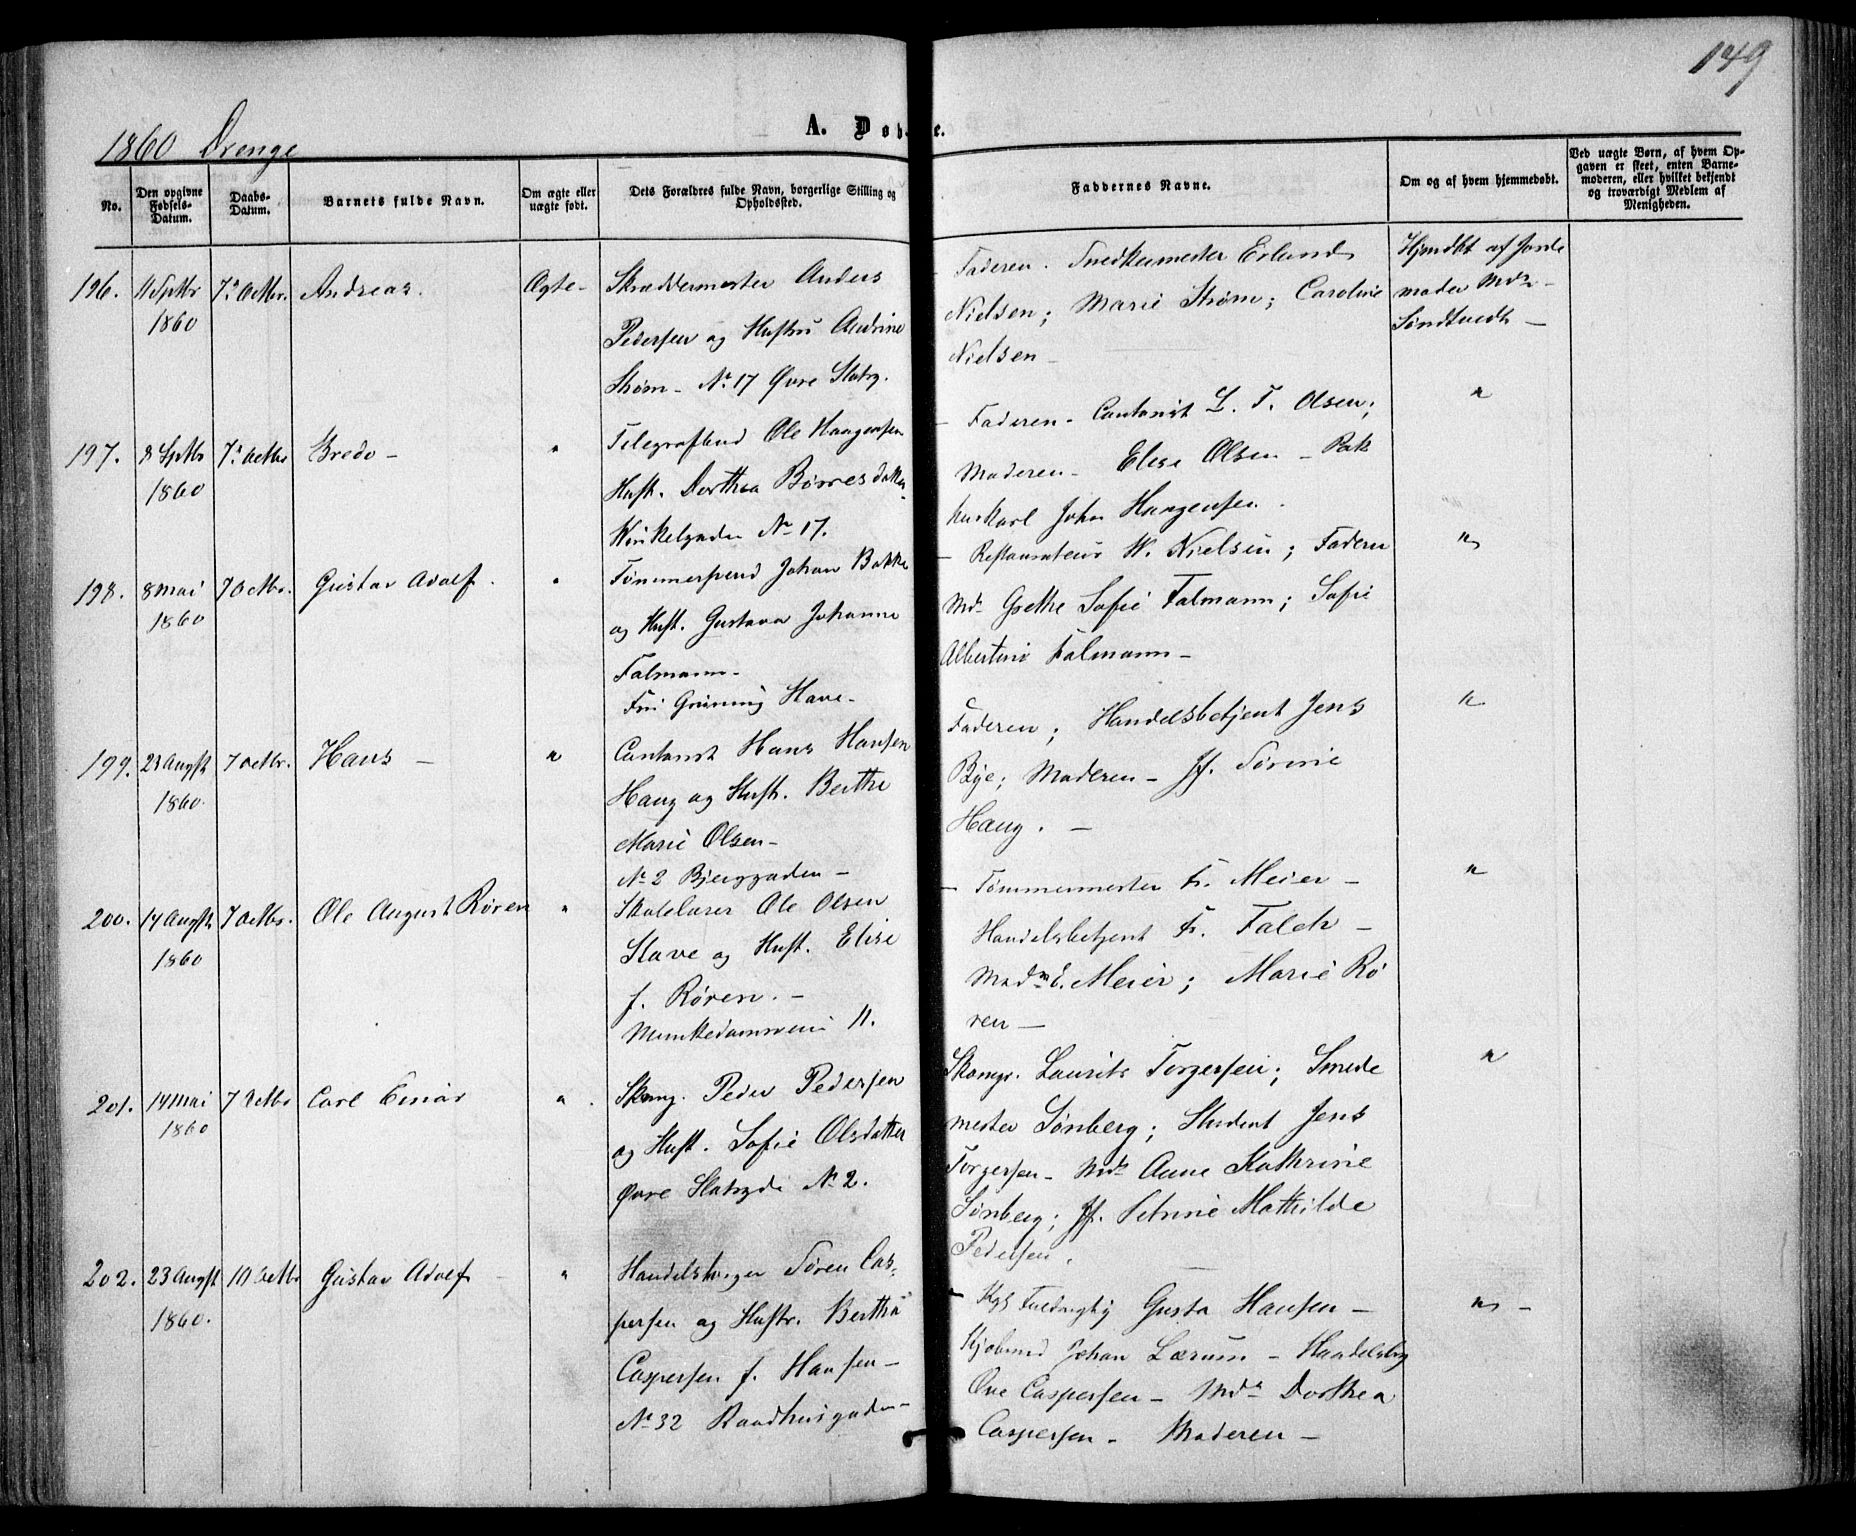 149
1860 Drenge
A. Døbte.
No.
Den opgivne Fødsels-Datum.
Daabs-Datum.
Barnets fulde Navn.
Om ægte eller uægte født.
Dets Forældres fulde Navn, borgerlige Stilling og Opholdssted.
Faddernes Navne.
Om og af hvem hjemmedøbt.
Ved uægte Børn, af hvem Opgaven er skeet, enten Barnemoderen, eller hvilket bekjendt og troværdigt Medlem af Menigheden.
196. 11 Septbr 1860 7de Octbr. Andreas. Ægte-
Skræddermester Anders
Pedersen og Hustru Andrine
Strøm - No 17 Øvre Slotsg.
Faderen. Snedkermester Erland
Nielsen; Marie Strøm; Caroline
Nielsen -
Hjmdbt af Jorde
moder Md.
Søndtvedt -
197. 8 Septbr 1860 7de Octbr Bredo - "
Telegrafbud Ole Haagensen
Hust. Dorthea Børresdatter
Winkelgaden No 17.
Faderen - Cantorist L. T. Olsen;
Moderen - Elise Olsen - Pak
huskarl John Haagensen.
"
198. 8 Mai 1860 7 Octbr. Gustav Adolf. "
Tømmersvend Johan Bakke
og Hust. Gustava Johanne
Falmann -
Grüning Have -
- Restaurateur W. Nielsen; Faderen
Md. Grethe Sofie Falmann; Sofie
Albertine Falmann -
"
199. 23 Augst 1860. 7 Octbr. Hans - "
Cantorist Hans Hansen
Haug og Hust. Berthe
Marie Olsen -
No 2 Bjerggaden -
Faderen; Handelsbetjent Jens
Bye; Moderen - Jf. Sørine
Haug. -
"
200. 14 Augst 1860 7 Octbr. Ole August Røren "
Skolelærer Ole Olsen
Stave og Hust. Elise
f. Røren. -
Munkedamsveien 11.
- Tømmermester Fr. Meier -
Handelsbetjent Fr. Falch -
Madm E. Meier; Marie Rø
ren -
"
201. 14 Mai 1860 7 Octbr Carl Einar "
Skomg. Peder Pedersen
og Hust. Sofie Olsdatter
Øvre Slotsgde No 2.
Skomgr. Laurits Torgersen; Smede
mester Sønberg; Student Jens
Torgersen - Md. Anne Kathrine
Sønberg; Jf. Petrine Mathilde
Pedersen.
"
202. 23 Augst 1860. 10 Octbr Gustav Adolf - "
Handelsborger Søren Cas-
persen og Hustr. Berthe
Caspersen f. Hansen -
No 32 Raadhusgaden -
Gusta Hansen -
Kjøbmd Johan Lærum - Handelsbg
Ove Caspersen - Md. Dorthea
Caspersen - Moderen -
" -